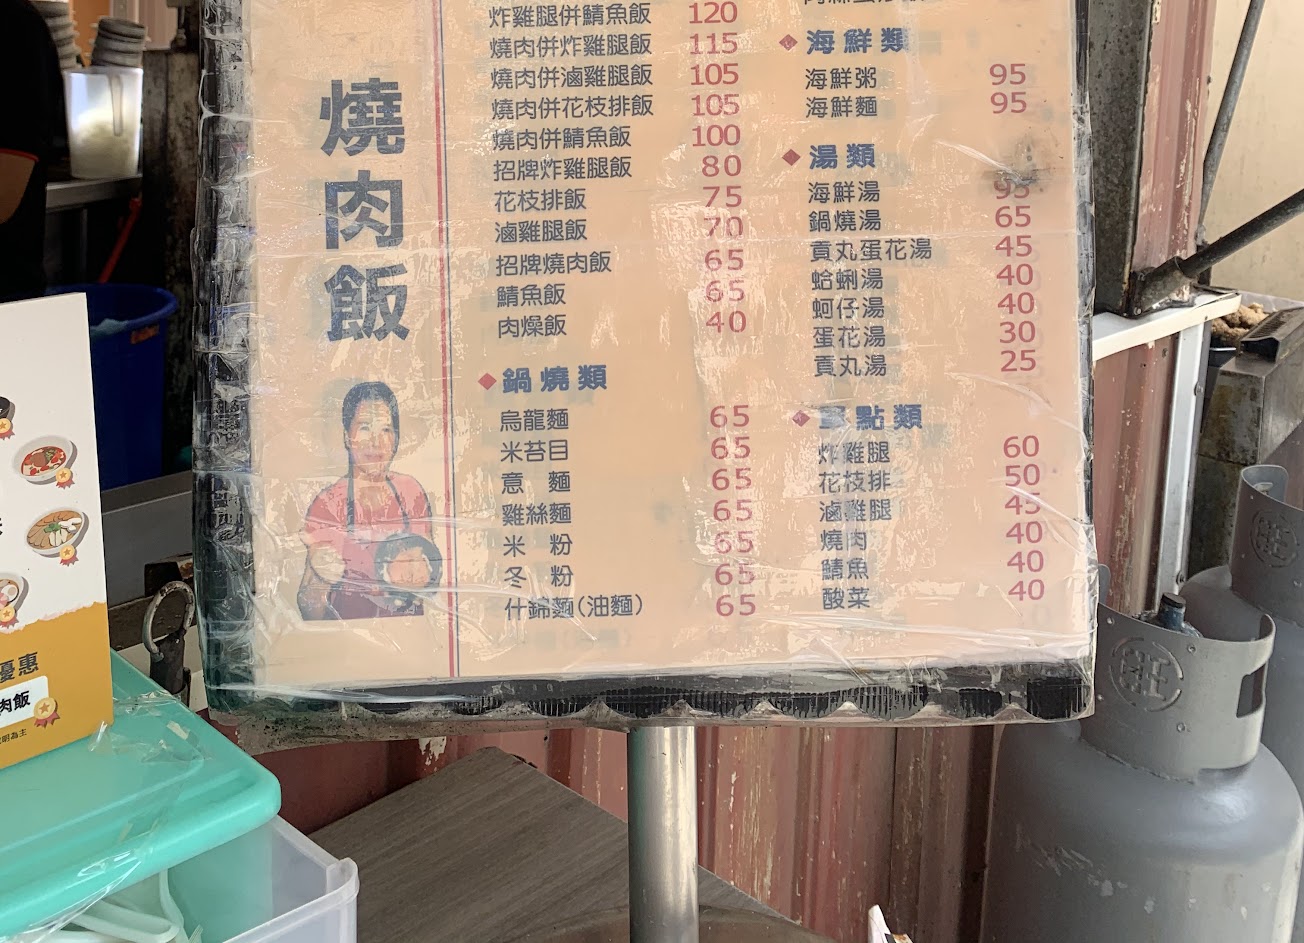 燒肉飯
炸雞腿併鯖魚飯 120
燒肉併炸雞腿飯 115
燒肉併滷雞腿飯 105
燒肉併花枝排飯 105
燒肉併鯖魚飯 100
招牌炸雞腿飯 80
花枝排飯 75
滷雞腿飯 70
招牌燒肉飯 65
鯖魚飯 65
肉燥飯 40
鍋燒類
烏龍麵 65
米苔目 65
意 麵 65
雞絲麵 65
米 粉 65
冬 粉 65
什錦麵(油麵) 65
海鮮類
海鮮粥 95
海鮮麵 95
湯類
海鮮湯 95
鍋燒湯 65
貢丸蛋花湯 45
蛤蜊湯 40
蚵仔湯 40
蛋花湯 30
貢丸湯 25
點類
炸雞腿 60
花枝排 50
滷雞腿 45
燒肉 40
鯖魚 40
酸菜 40
優惠
肉飯
為主